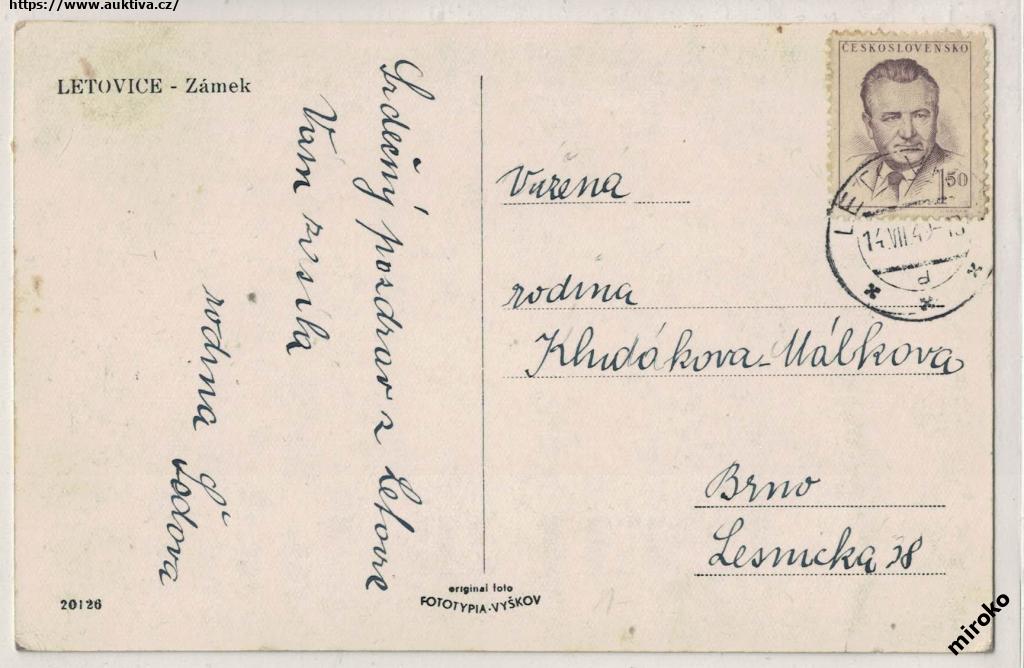 https://www.auktiva.cz/
LETOVICE - Zámek
Srdečný pozdrav z Letovic
Vám zasílá
rodina Šodova
20126
original foto
FOTOTYPIA-VYŠKOV
ČESKOSLOVENSKO
1.50
14.VII.49-18
d
Vážená
rodina
Kludákova-Málkova
Brno
Lesnická 38
miroko